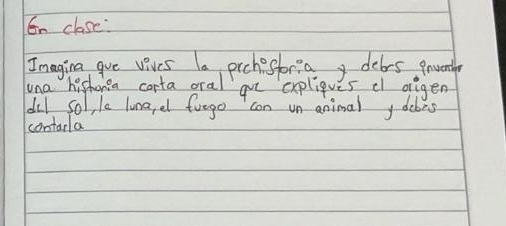 En clase:
Imagina que vives la prehistoria y debes inventar
una historia corta oral que expliques el origen
del sol, la luna, el fuego con un animal y debes
contarla